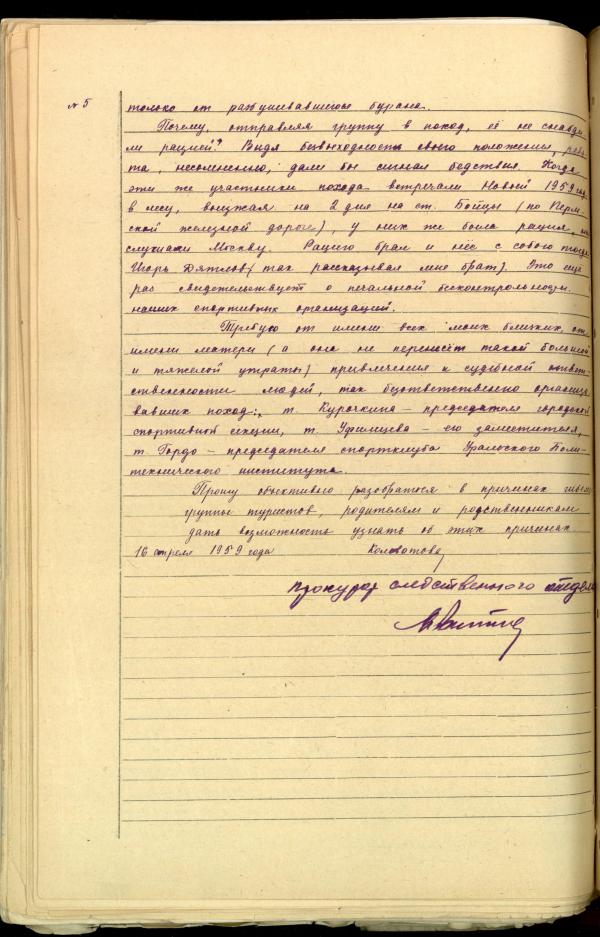 № 5
только от разбушевавшегося бурана.
Почему, отправляя группу в поход, её не снабди-
ли рацией? Видя безвыходность своего положения, ребя
та, несомненно, дали бы сигнал бедствия. Когда
эти же участники похода встречали Новый 1959 год
в лесу, выезжая на 2 дня на ст. Бойцы (по Перм-
ской железной дороге), у них же была рация, они
слушали Москву. Рацию брал и нёс с собою тогда
Игорь Дятлов (так рассказывал мне брат). Это ещё
раз свидетельствует о печальной бесконтрольности
наших спортивных организаций.
Требую от имени всех моих близких, от
имени матери (а она не перенесёт такой большой
и тяжелой утраты) привлечения к судебной ответ-
ственности людей, так безответственно организо
вавших поход: т. Курочкина – председателя городской
спортивной секции, т. Уфимцева – его заместителя,
т. Гордо – председателя спортклуба Уральского Поли-
технического института.
Прошу объективно разобраться в причинах гибели
группы туристов, родителям и родственникам
дать возможность узнать об этих причинах.
16 апреля 1959 года Колеватова
Прокурор следственного отдела